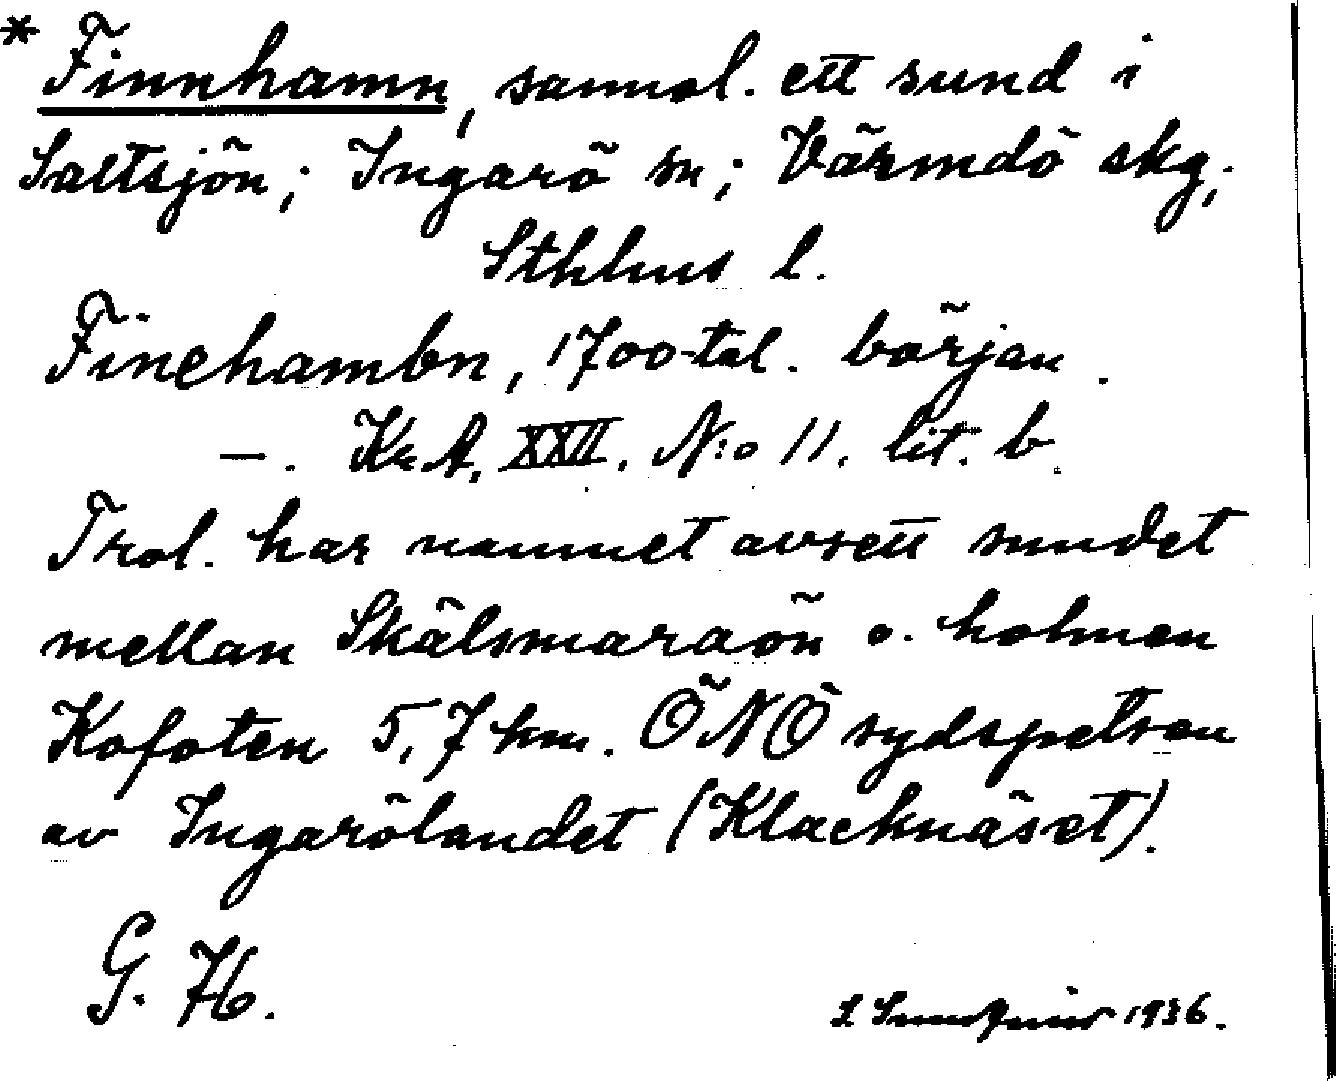 * Finnhamn, sannol. ett sund i
Saltsjön; Ingarö sn; Värmdö skg,
Sthlms l.
Finehambn, 1700-tal. början.
—. Kr.A. XXII. N:o 11. lit. b.
Trol. har namnet avsett sundet
mellan Skälsmaraön o. holmen
Kofoten 5,7 km. ÖNÖ sydspetsen
av Ingarölandet (Klacknäset).
G. H.
1936.